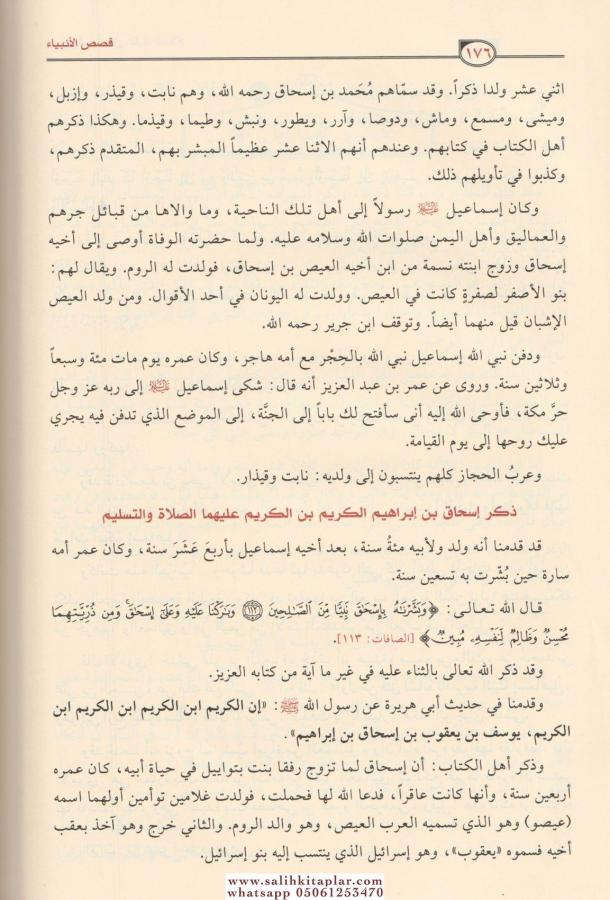 قصص الأنبياء
١٧٦
اثني عشر ولدا ذكراً. وقد سمّاهم مُحَمد بن إسحاق رحمه الله، وهم نابت، وقيذر، وإزبل،
وميشى، ومسمع، وماش، ودوصا، وآرر، ويطور، ونبش، وطيما، وقيذما. وهكذا ذكرهم
أهل الكتاب في كتابهم. وعندهم أنهم الاثنا عشر عظيماً المبشر بهم، المتقدم ذكرهم،
وكذبوا في تأويلهم ذلك.
وكان إسماعيل ﷺ رسولاً إلى أهل تلك الناحية، وما والاها من قبائل جرهم
والعماليق وأهل اليمن صلوات الله وسلامه عليه. ولما حضرته الوفاة أوصى إلى أخيه
إسحاق وزوج ابنته نسمة من ابن أخيه العيص بن إسحاق، فولدت له الروم. ويقال لهم:
بنو الأصفر لصفرةٍ كانت في العيص. وولدت له اليونان في أحد الأقوال. ومن ولد العيص
الإشبان قيل منهما أيضاً. وتوقف ابن جرير رحمه الله.
ودفن نبي الله إسماعيل نبي الله بالحِجْر مع أمه هاجر، وكان عمره يوم مات مئة وسبعاً
وثلاثين سنة. وروى عن عمر بن عبد العزيز أنه قال: شكى إسماعيل ﷺ إلى ربه عز وجل
حرَّ مكة، فأوحى الله إليه أنى سأفتح لك باباً إلى الجنَّة، إلى الموضع الذي تدفن فيه يجري
عليك روحها إلى يوم القيامة.
وعربُ الحجاز كلهم ينتسبون إلى ولديه: نابت وقيذار.
ذكر إسحاق بن إبراهيم الكريم بن الكريم عليهما الصلاة والتسليم
قد قدمنا أنه ولد ولأبيه مئةُ سنة، بعد أخيه إسماعيل بأربعَ عَشَرَ سنة، وكان عمر أمه
سارة حين بُشّرت به تسعين سنة.
قال الله تعالى: ﴿وَبَشَّرْنَٰهُ بِإِسْحَٰقَ نَبِيًّا مِّنَ ٱلصَّٰلِحِينَ ۝١١٢ وَبَٰرَكْنَا عَلَيْهِ وَعَلَىٰٓ إِسْحَٰقَ ۚ وَمِن ذُرِّيَّتِهِمَا
مُحْسِنٌ وَظَالِمٌ لِّنَفْسِهِۦ مُبِينٌ﴾ [الصافات: ١١٣].
وقد ذكر الله تعالى بالثناء عليه في غير ما آية من كتابه العزيز.
وقدمنا في حديث أبي هريرة عن رسول الله ﷺ: «إن الكريم ابن الكريم ابن الكريم ابن
الكريم، يوسف بن يعقوب بن إسحاق بن إبراهيم».
وذكر أهل الكتاب: أن إسحاق لما تزوج رفقا بنت بتواييل في حياة أبيه، كان عمره
أربعين سنة، وأنها كانت عاقراً، فدعا الله لها فحملت، فولدت غلامين توأمين أولهما اسمه
(عيصو) وهو الذي تسميه العرب العيص، وهو والد الروم. والثاني خرج وهو آخذ بعقب
أخيه فسموه «يعقوب»، وهو إسرائيل الذي ينتسب إليه بنو إسرائيل.
www.salihkitaplar.com
whatsapp 05061253470